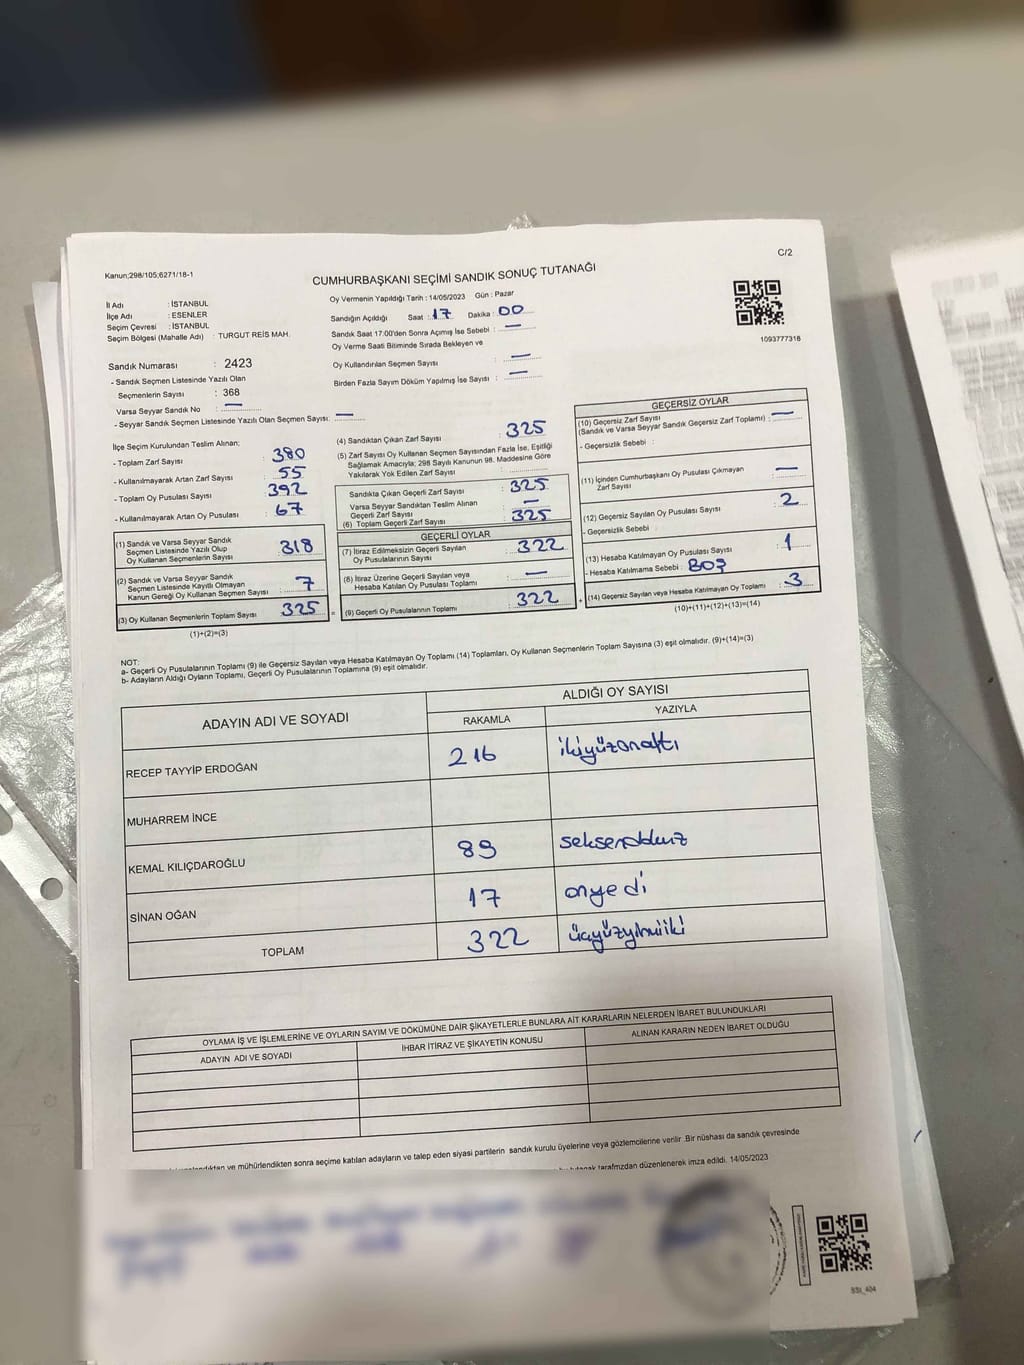 Kanun;298/105;6271/18-1
C/2
CUMHURBAŞKANI SEÇİMİ SANDIK SONUÇ TUTANAĞI
İl Adı : İSTANBUL
İlçe Adı : ESENLER
Seçim Çevresi : İSTANBUL
Seçim Bölgesi (Mahalle Adı) : TURGUT REİS MAH.
Oy Vermenin Yapıldığı Tarih : 14/05/2023 Gün : Pazar
Sandığın Açıldığı Saat : 17 Dakika : 00
Sandık Saat 17:00'den Sonra Açımış İse Sebebi : —
Oy Verme Saati Bitiminde Sırada Bekleyen ve
Oy Kullandırılan Seçmen Sayısı : —
Birden Fazla Sayım Döküm Yapılmış İse Sayısı : —
1093777318
Sandık Numarası : 2423
- Sandık Seçmen Listesinde Yazılı Olan
Seçmenlerin Sayısı : 368
Varsa Seyyar Sandık No : —
- Seyyar Sandık Seçmen Listesinde Yazılı Olan Seçmen Sayısı: —
İlçe Seçim Kurulundan Teslim Alınan;
- Toplam Zarf Sayısı : 380
- Kullanılmayarak Artan Zarf Sayısı : 55
- Toplam Oy Pusulası Sayısı : 392
- Kullanılmayarak Artan Oy Pusulası : 67
(1) Sandık ve Varsa Seyyar Sandık
Seçmen Listesinde Yazılı Olup
Oy Kullanan Seçmenlerin Sayısı : 318
(2) Sandık ve Varsa Seyyar Sandık
Seçmen Listesinde Kayıtlı Olmayan
Kanun Gereği Oy Kullanan Seçmen Sayısı : 7
(3) Oy Kullanan Seçmenlerin Toplam Sayısı : 325
(1)+(2)=(3)
(4) Sandıktan Çıkan Zarf Sayısı : 325
(5) Zarf Sayısı Oy Kullanan Seçmen Sayısından Fazla İse, Eşitliği
Sağlamak Amacıyla; 298 Sayılı Kanunun 98. Maddesine Göre
Yakılarak Yok Edilen Zarf Sayısı :
Sandıkta Çıkan Geçerli Zarf Sayısı : 325
Varsa Seyyar Sandıktan Teslim Alınan
Geçerli Zarf Sayısı : —
(6) Toplam Geçerli Zarf Sayısı : 325
GEÇERLİ OYLAR
(7) İtiraz Edilmeksizin Geçerli Sayılan
Oy Pusulalarının Sayısı : 322
(8) İtiraz Üzerine Geçerli Sayılan veya
Hesaba Katılan Oy Pusulası Toplamı : —
= (9) Geçerli Oy Pusulalarının Toplamı : 322
GEÇERSİZ OYLAR
(10) Geçersiz Zarf Sayısı
(Sandık ve Varsa Seyyar Sandık Geçersiz Zarf Toplamı) : —
- Geçersizlik Sebebi :
(11) İçinden Cumhurbaşkanı Oy Pusulası Çıkmayan
Zarf Sayısı : —
(12) Geçersiz Sayılan Oy Pusulası Sayısı : 2
- Geçersizlik Sebebi :
(13) Hesaba Katılmayan Oy Pusulası Sayısı : 1
- Hesaba Katılmama Sebebi :
+ (14) Geçersiz Sayılan veya Hesaba Katılmayan Oy Toplamı : 3
(10)+(11)+(12)+(13)=(14)
NOT:
a- Geçerli Oy Pusulalarının Toplamı (9) ile Geçersiz Sayılan veya Hesaba Katılmayan Oy Toplamı (14) Toplamları, Oy Kullanan Seçmenlerin Toplam Sayısına (3) eşit olmalıdır. (9)+(14)=(3)
b- Adayların Aldığı Oyların Toplamı, Geçerli Oy Pusulalarının Toplamına (9) eşit olmalıdır.
ADAYIN ADI VE SOYADI
ALDIĞI OY SAYISI
RAKAMLA YAZIYLA
RECEP TAYYİP ERDOĞAN 216 ikiyüzonaltı
MUHARREM İNCE
KEMAL KILIÇDAROĞLU 89 seksendokuz
SİNAN OĞAN 17 onyedi
TOPLAM 322 üçyüzyirmiiki
OYLAMA İŞ VE İŞLEMLERİNE VE OYLARIN SAYIM VE DÖKÜMÜNE DAİR ŞİKAYETLERLE BUNLARA AİT KARARLARIN NELERDEN İBARET BULUNDUKLARI
ADAYIN ADI VE SOYADI İHBAR İTİRAZ VE ŞİKAYETİN KONUSU ALINAN KARARIN NEDEN İBARET OLDUĞU
ve mühürlendikten sonra seçime katılan adayların ve talep eden siyasi partilerin sandık kurulu üyelerine veya gözlemcilerine verilir .Bir nüshası da sandık çevresinde
tarafımzdan düzenlenerek imza edildi. 14/05/2023